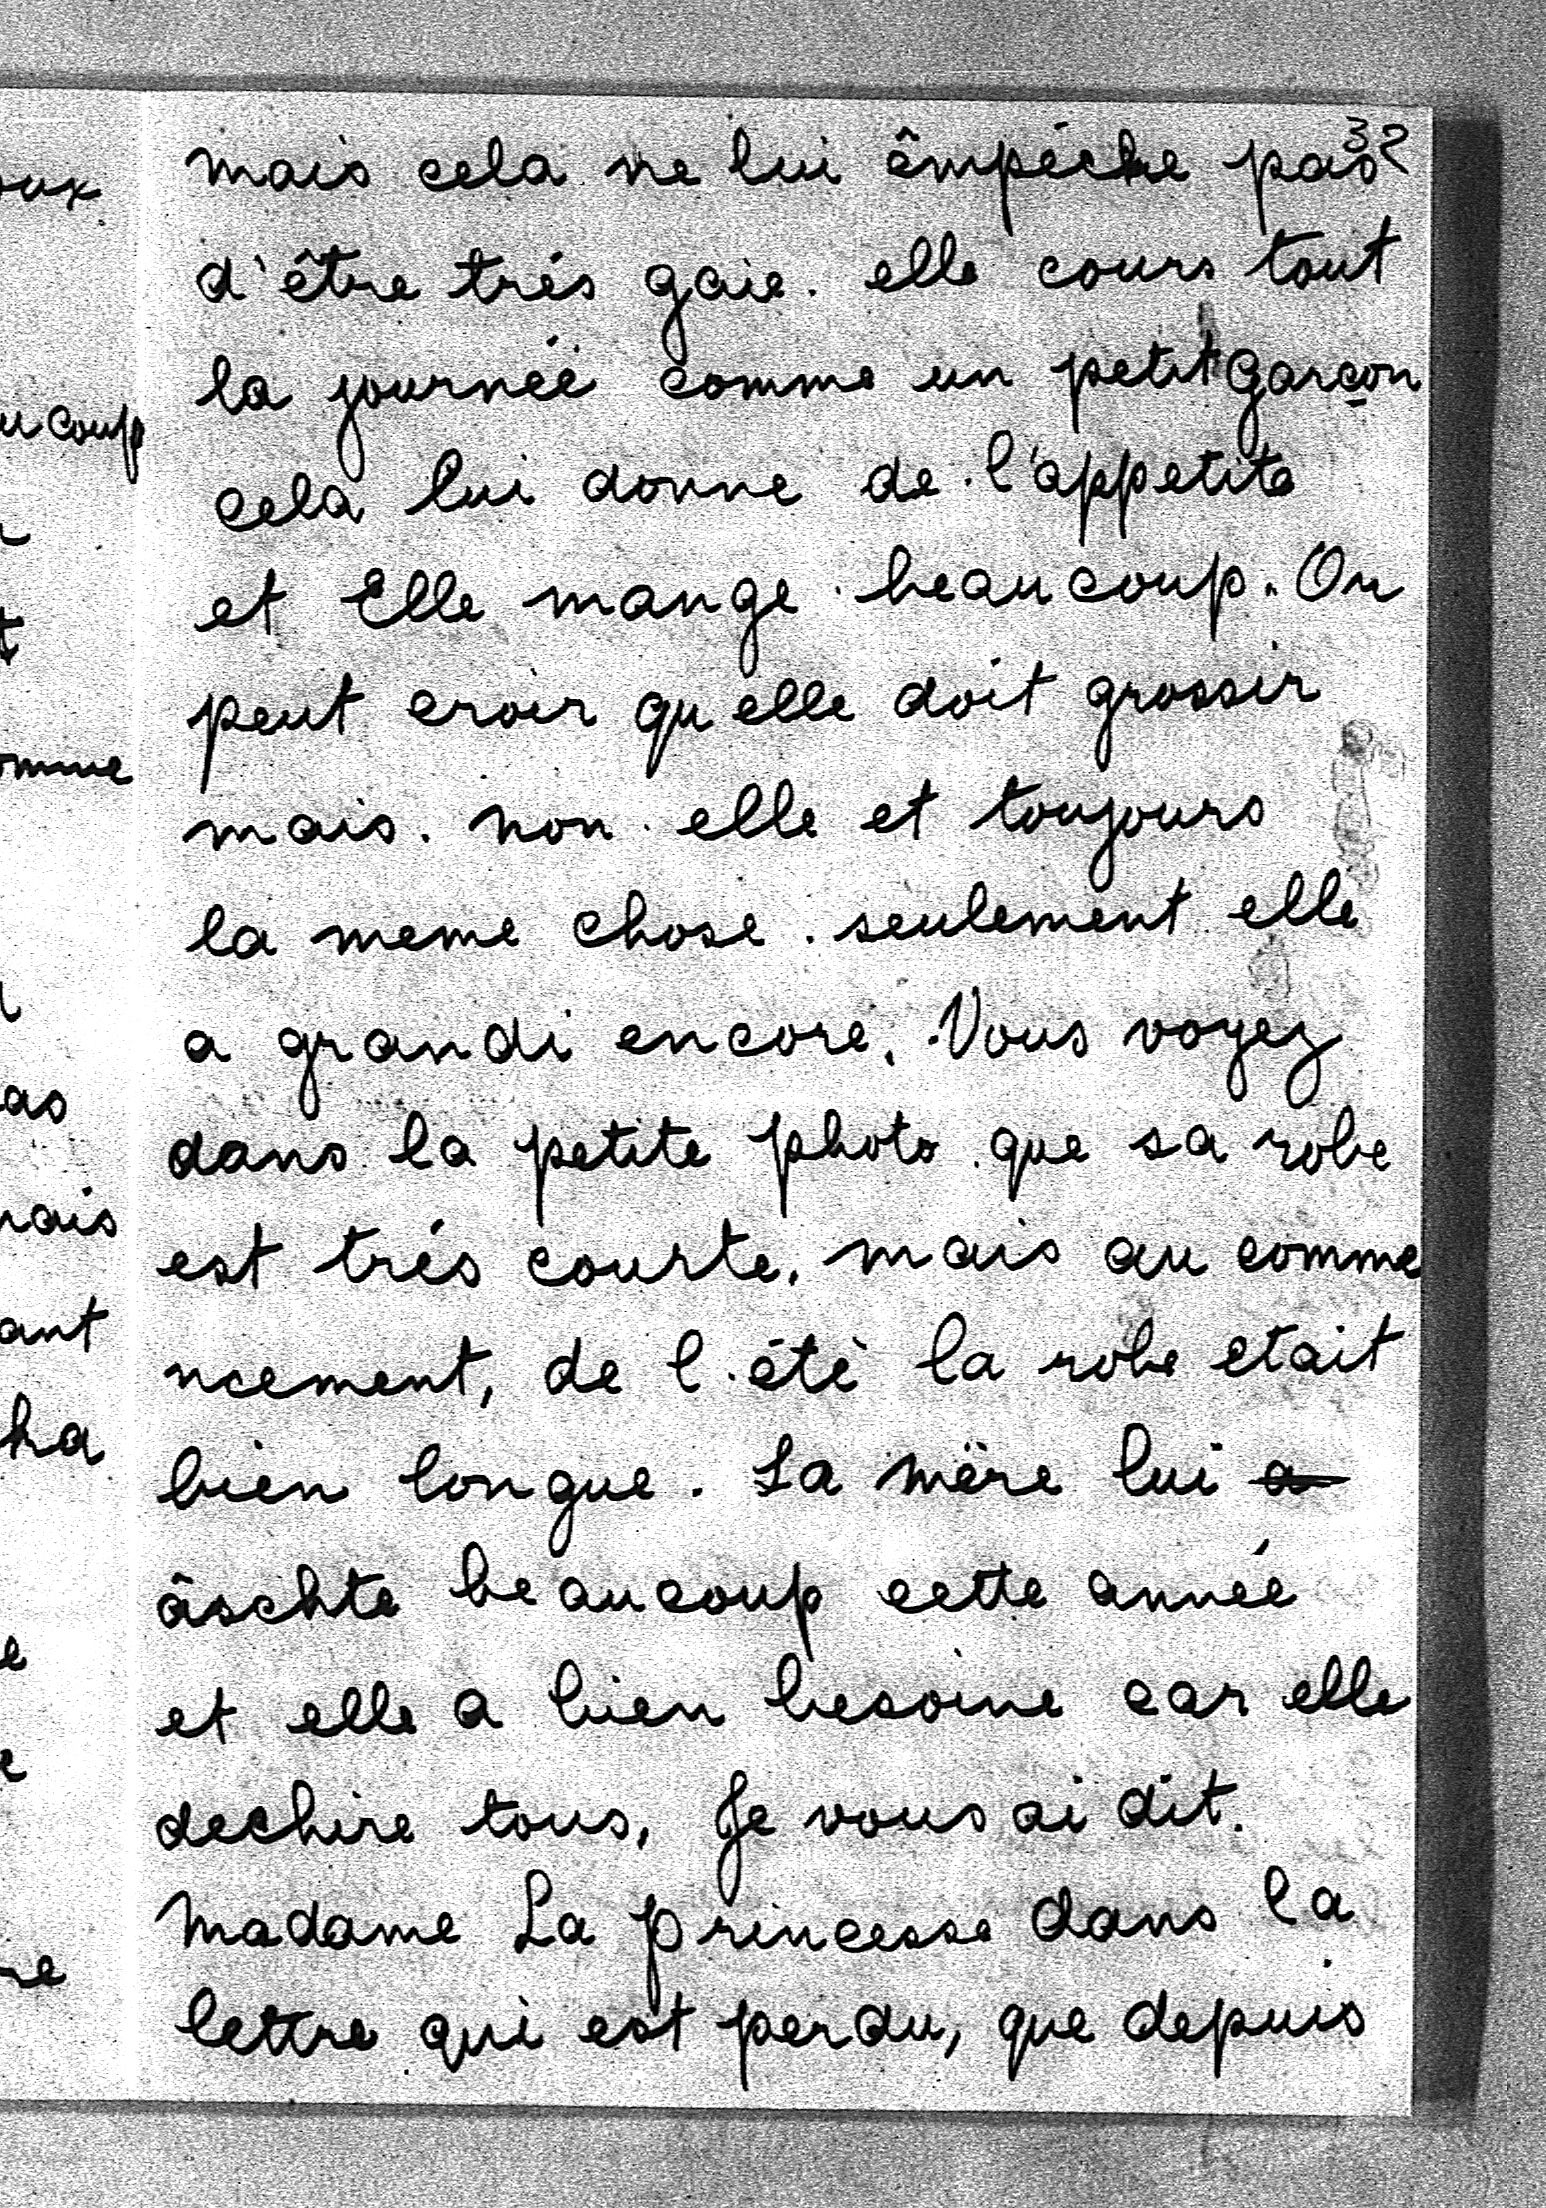 32
mais cela ne lui êmpéche pas
d'être trés gaie. elle cours tout
la journéë comme un petit garçon
cela lui donne de l'appetite
et Elle mange beaucoup. On
peut croir qu elle doit grossir
mais. non. elle et toujours
la meme chose. seulement elle
a grandi encore. Vous voyez
dans la petite photo que sa robe
est trés courte. mais au comme
ncement, de l.étè la robe etait
bien longue. Sa mëre lui a
âschte beaucoup cette année
et elle a bien besoine car elle
dechire tous, Je vous ai dit.
Madame La princesse dans la
lettre qui est perdu, que depuis
oux
ucoup
t
omme
as
ais
ant
ha
e
e
re